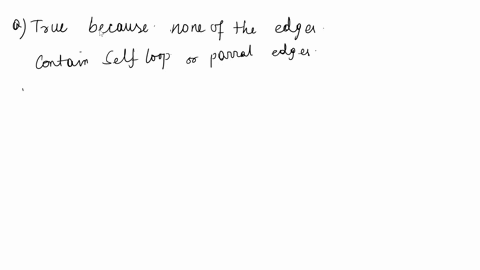 a) True because none of the edges
Contain Self loop or parral edges.